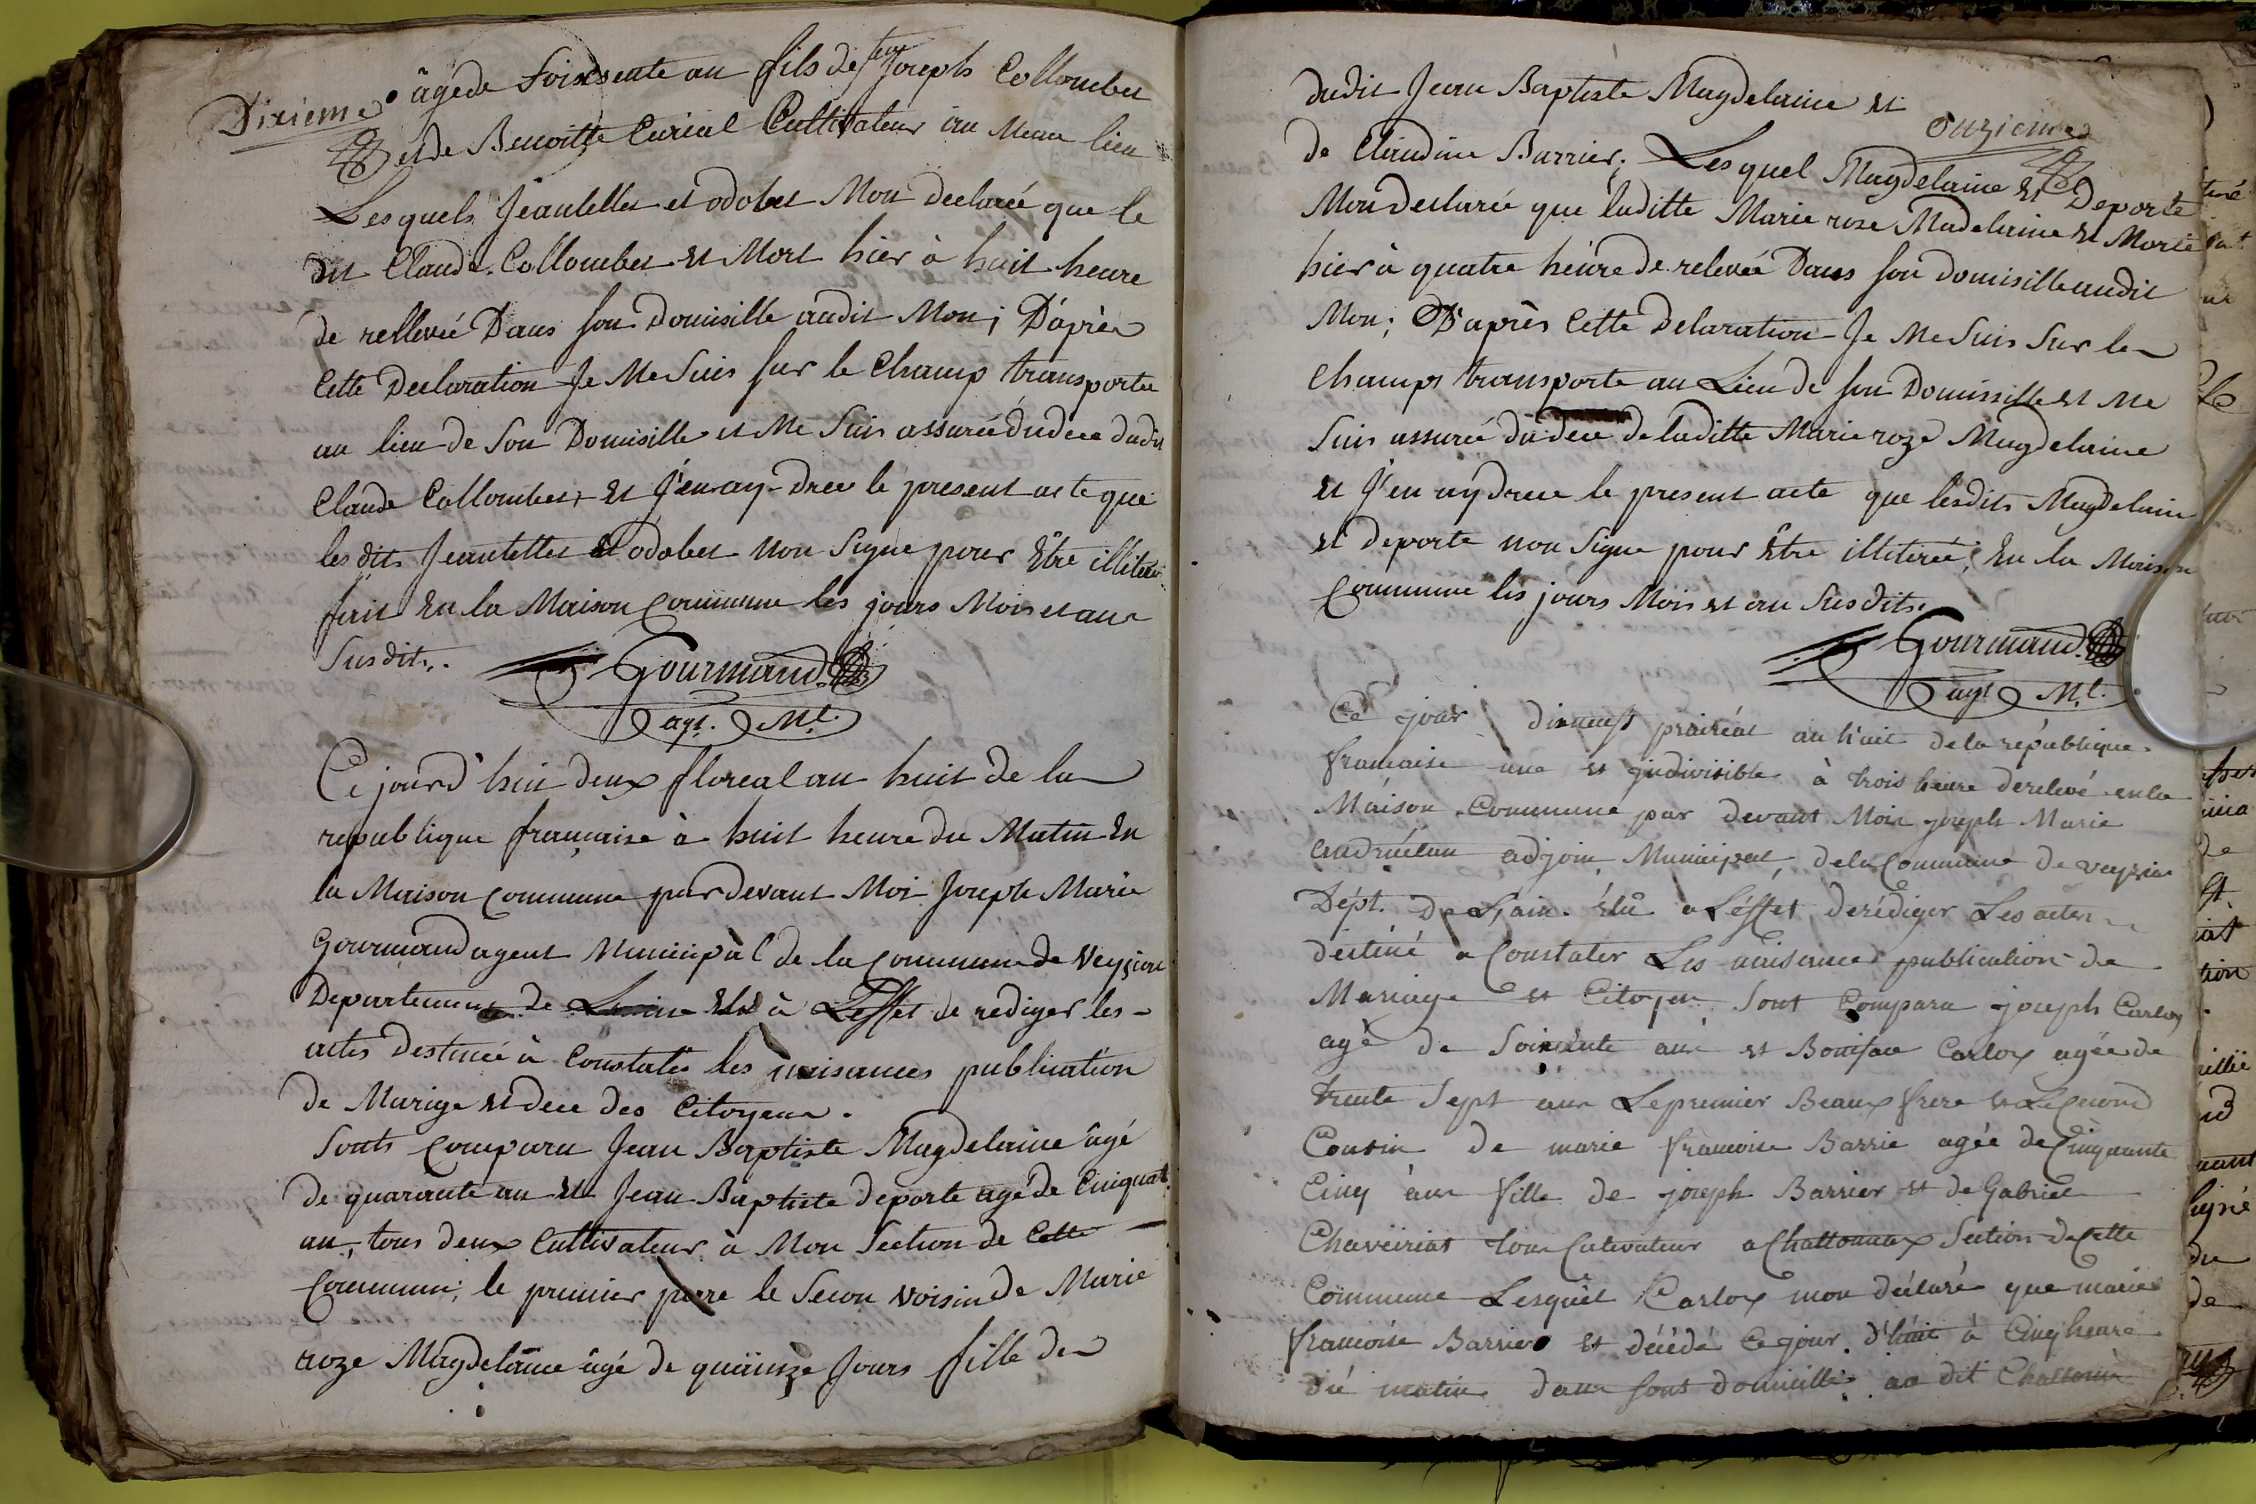 Dixieme
âgé de soixsente an fils de feu Joseph Collombet
et de Benoitte Curial Cultivateur au Meme lieu
Lesquels Jeantellet et odobet Mon declaré que le
dit Claude Collombet et Mort hier à huit heure
de rellevée Dans son Domisille audit Mon; D'après
Cette Declaration Je Me Suis sur le Champ transporte
au lieu de Son Domisille et Me Suis assurée du dece dudit
Claude Collombet, et J'en ay Drece le present acte que
lesdits Jeantellet et odobet non Signe pour Être illiteré
fait En la Maison Commune les jours Mois et an
Susdits.
Gourmand
agt. Ml.
Ce jourd'hui deux floreal an huit de la
republique française à huit heure du Matin En
la Maison Commune par devant Moi Joseph Marie
Gourmand agent Municipal de la Commune de Veyzia
Departement de Elu à L'effet de rediger les
actes Destinée à Constater les naisances publication
de Marige et dece des Citoyens.
Sonts Comparu Jean Baptiste Magdelaine âgé
de quarante an et Jean Baptiste deporte agé de Cinquante
an, tous deux Cultivateur à Mon Section de Cette
Commune, le premier pere le Secon voisin de Marie
roze Magdelaine âgé de quinze Jours fille de
dudit Jean Baptiste Magdelaine et
Onzieme
de Claudine Barrier; Lesquel Magdelaine et Deporte
Mon declarée que laditte Marie rose Madelaine et Morte
hier à quatre héure de relevée Dans son domisille audit
Mon; D'après Cette Delaration Je Me Suis Sur le
Champs transporte au Lieu de son Domissille et Me
Suis assurée du dece de laditte Marie roze Magdelaine
et J'en ay drece le present acte que lesdits Magdelaine
et deporte non Signe pour Être illiterée, En la Maison
Commune les jours Mois et an Susdits.
Gourmand
agt Ml.
Ce jour dixneuf prairéal an huit de la république
francaise une et indivisible à trois heure de relevé en la
Maison Commune par devant Moi joseph Marie
adjoin Municipal de la Commune de veyzia
Dépt. De L'ain. élu a L'éffet de rédiger Les actes
déstiné a Constater Les naisances publication de
Mariage et Citoyen Sont Comparu joseph Carloz
agé de Soixente an et Boniface Carloz agée de
trente Sept an Le premier Beaux frere et Le Second
Cousin de marie francoise Barrie agée de Cinquante
Cinq an fille de joseph Barrier et de Gabriel
Chaveiriat tous Cultivateur a Chattonnax Section de Cette
Commune Lesquel Carloz mon déclaré que marie
francoise Barrier et décédé Ce jour d'huit à Cinq heure
du matin dans sont domicille au dit Chattonax